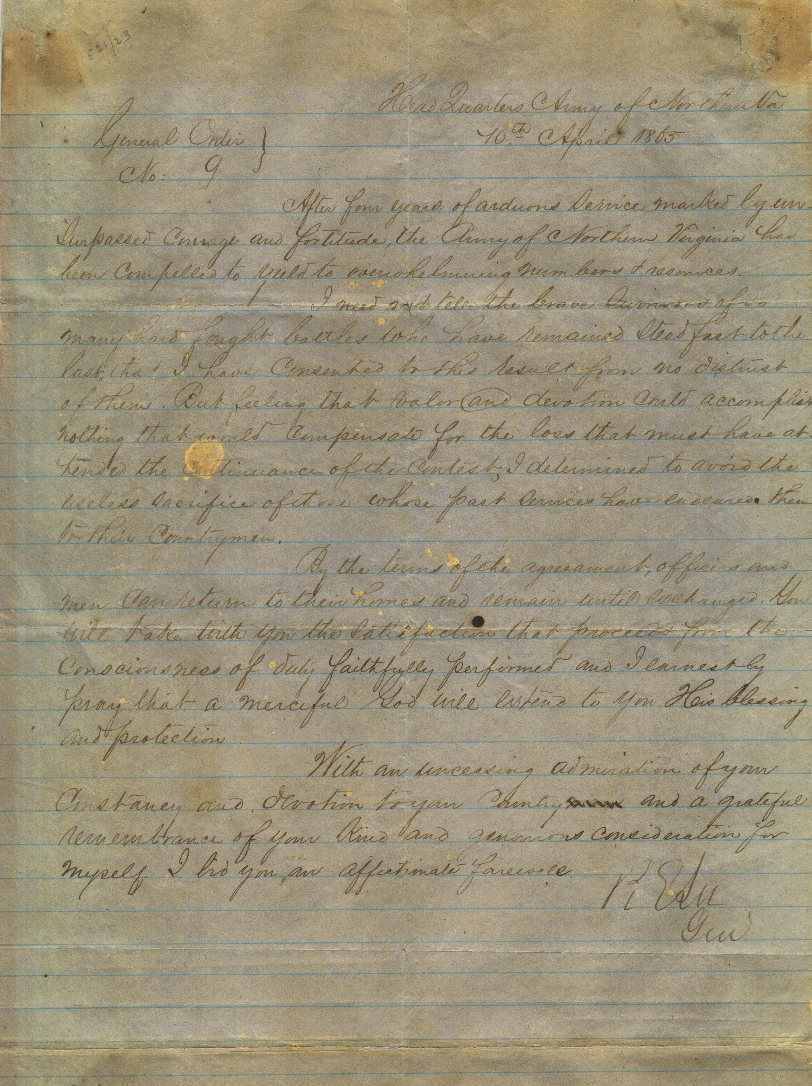 521/23
Head Quarters Army of Northern Va
10th April 1865
General Order }
No: 9
After four years of arduous Service marked by un
surpassed Courage and fortitude, the Army of Northern Virginia has
been Compelled to yield to overwhelming numbers & resources.
I need not tell the brave Survivors of so
many hard fought battles who have remained Steadfast to the
last, that I have Consented to this result from no distrust
of them. But feeling that valor and devotion Could accomplish
nothing that would Compensate for the loss that must have at
tended the Continuance of the Contest, I determined to avoid the
useless Sacrifice of those whose past Services have endeared them
to their Countrymen.
By the terms of the agreement, officers and
men Can return to their homes and remain until exchanged. You
will take with you the Satisfaction that proceeds from the
Consciousness of duty faithfully performed and I earnestly
pray that a merciful God will extend to you His blessing
and protection
With an unceasing admiration of your
Constancy and devotion to your Country and a grateful
remembrance of your Kind and generous consideration for
myself I bid you, an affectionate farewell.
R E Lee
Genl